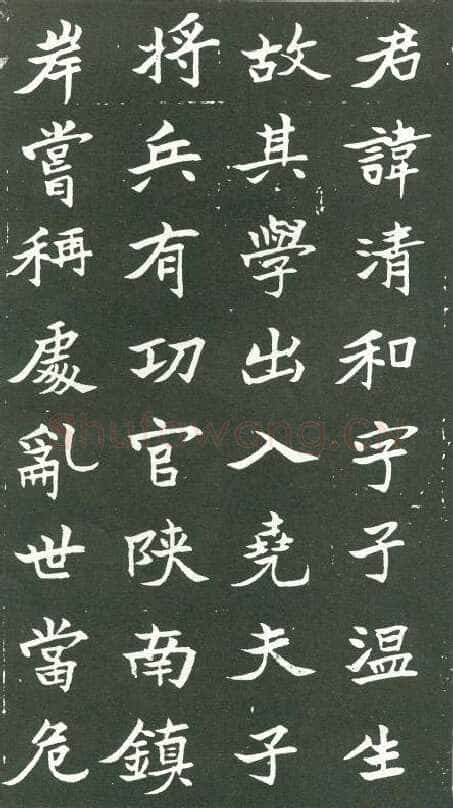 君諱清和字子温生
故其學出入堯夫子
將兵有功官陝南鎮
岸嘗稱處亂世當危